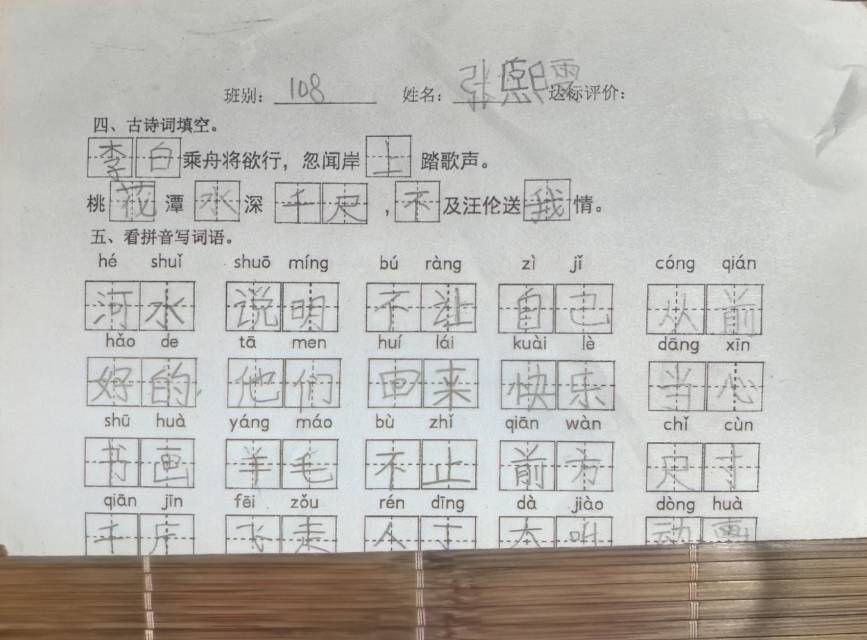 班别：108 姓名：张熙霏 达标评价：
四、古诗词填空。
李白乘舟将欲行，忽闻岸上踏歌声。
桃花潭水深千尺，不及汪伦送我情。
五、看拼音写词语。
hé shuǐ shuō míng bú ràng zì jǐ cóng qián
河水 说明 不让 自己 从前
hǎo de tā men huí lái kuài lè dāng xīn
好的 他们 回来 快乐 当心
shū huà yáng máo bù zhǐ qiān wàn chǐ cùn
书画 羊毛 不止 前方 尺寸
qiān jīn fēi zǒu rén dīng dà jiào dòng huà
千斤 飞走 人丁 大叫 动画